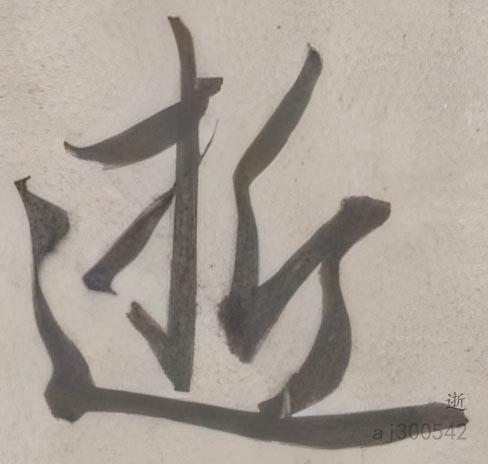 逝
逝
aj300542